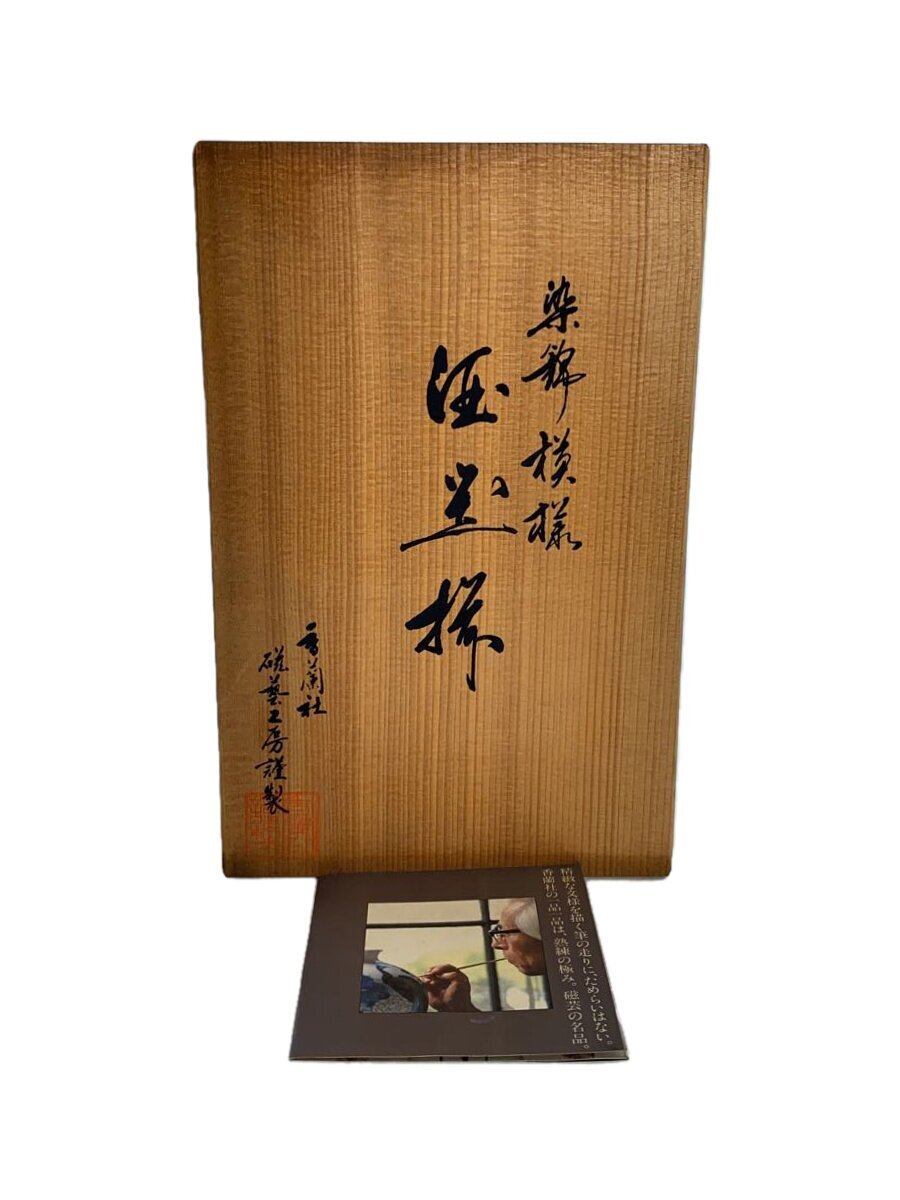 染錦模様
酒器揃
香蘭社
磁藝工房謹製
精緻な文様を描く筆の走りに、ためらいはない。
香蘭社の一品一品は、熟練の極み。磁芸の名品。